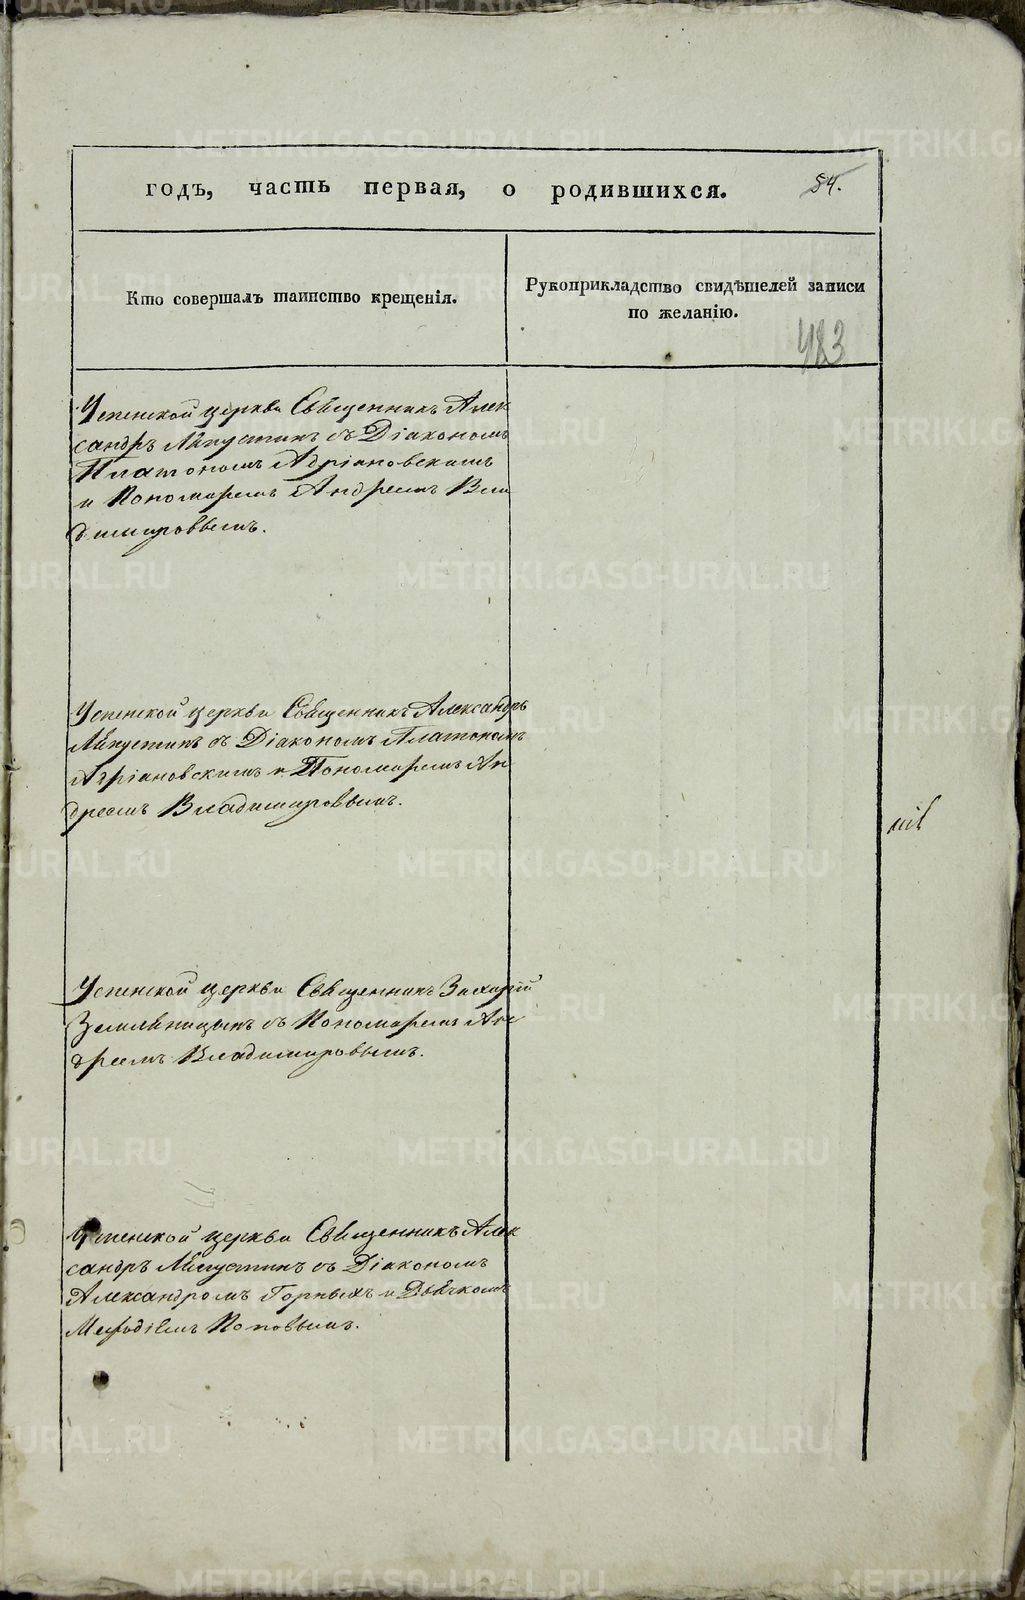 годъ, часть первая, о родившихся.
54.
Кто совершалъ таинство крещенія.
Рукоприкладство свидѣтелей записи
по желанію.
483
Успенской церкви Священникъ Алек
сандръ съ Діакономъ
Платономъ Адріановскимъ
и Пономаремъ Андреемъ Вла
димировымъ.
Успенской церкви Священникъ Александръ
съ Діакономъ Платономъ
Адріановскимъ и Пономаремъ Ан
дреемъ Владимировымъ.
Успенской церкви Священникъ Захарій
Земляницынъ съ Пономаремъ Ан
дреемъ Владимировымъ.
Успенской церкви Священникъ Алек
сандръ съ Діакономъ
Александромъ Горныхъ и Дьячкомъ
Мефодіемъ Поповымъ.
METRIKI.GASO-URAL.RU